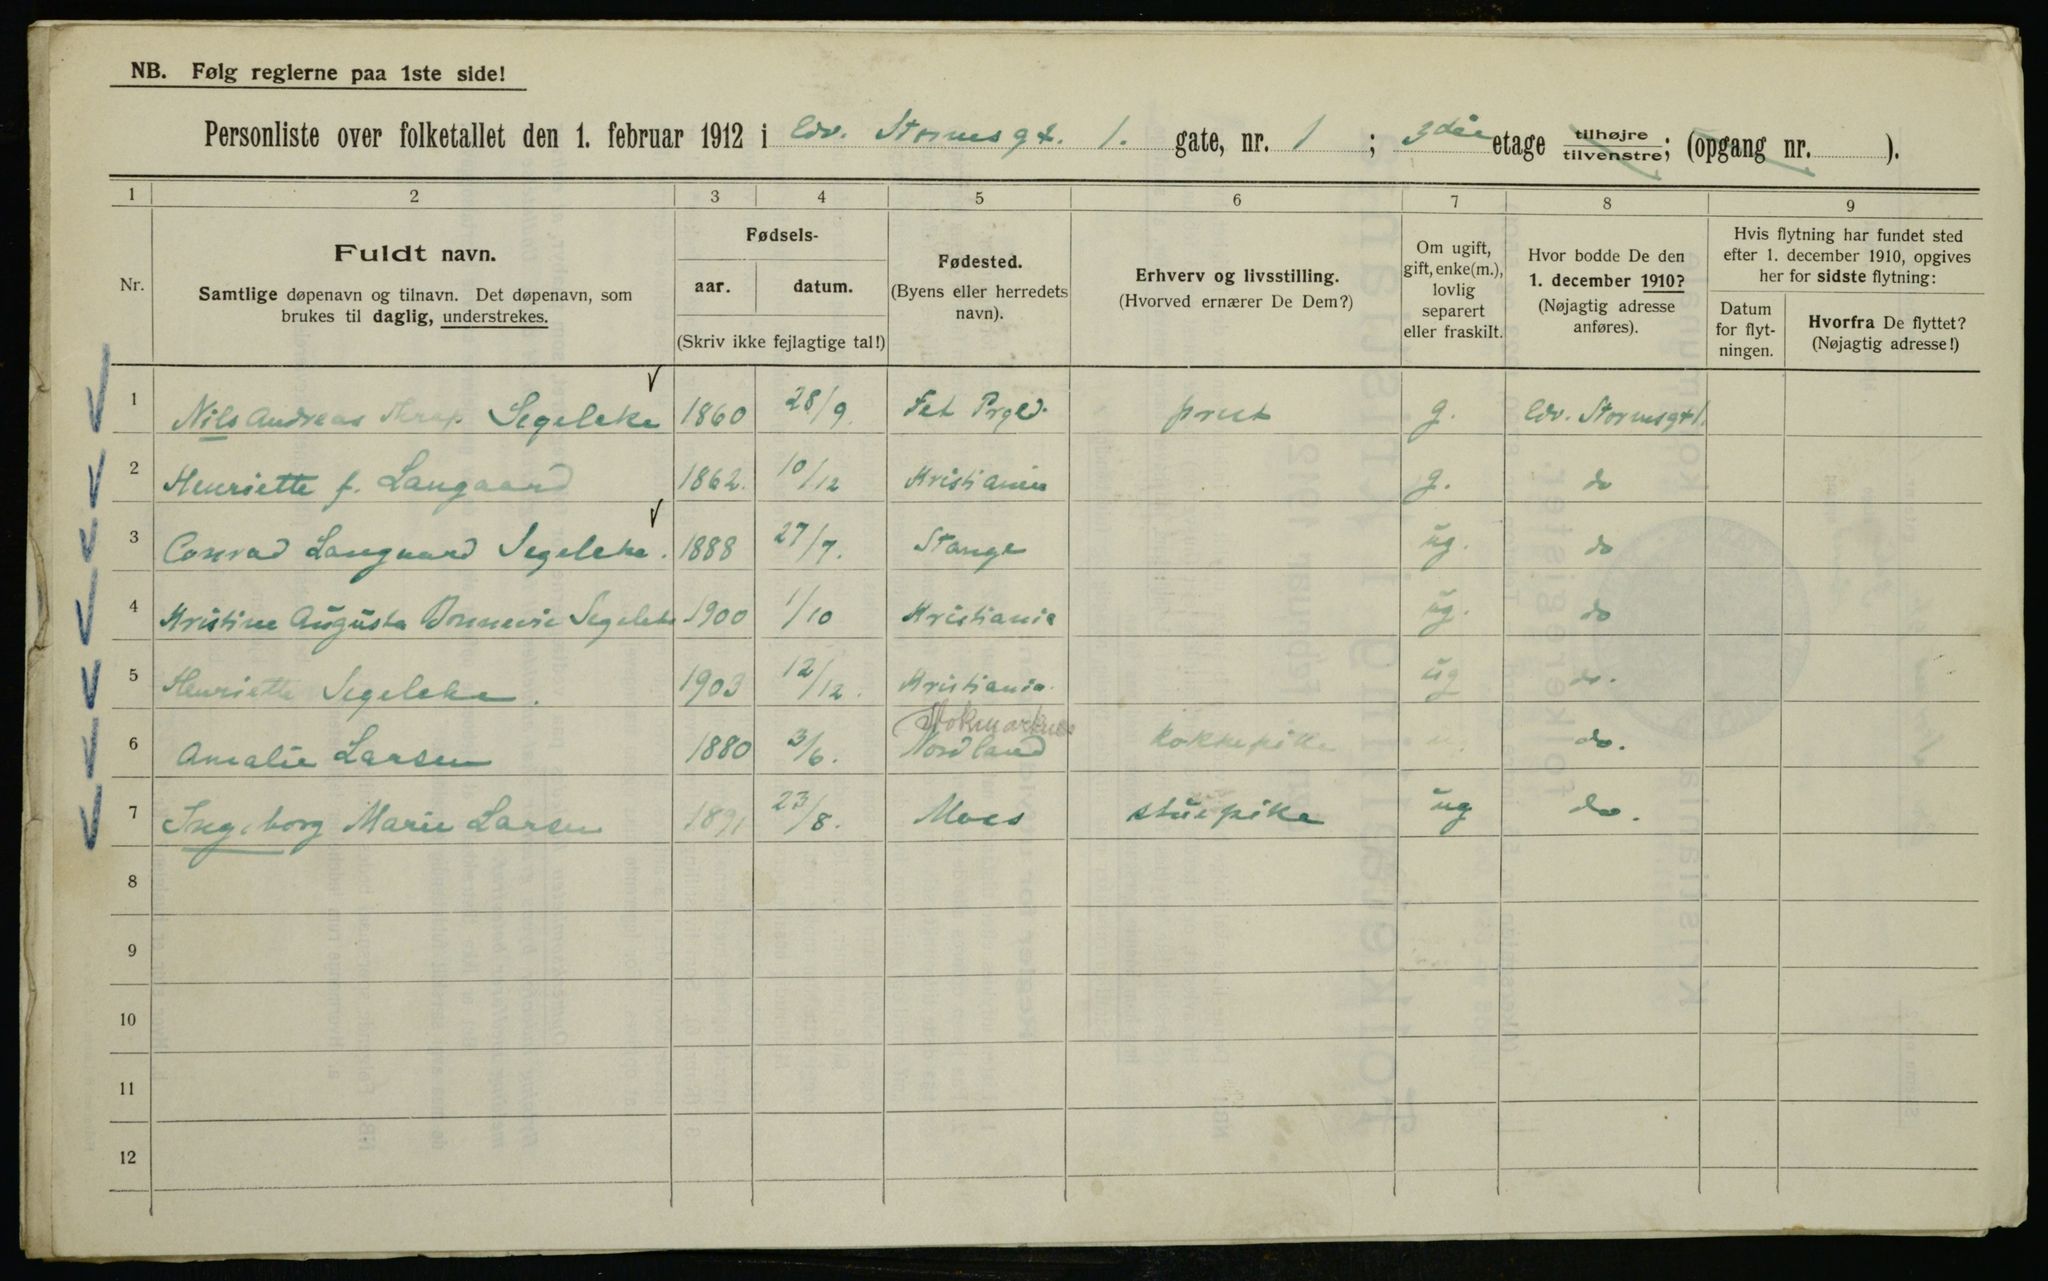 NB. Følg reglerne paa 1ste side!
Personliste over folketallet den 1. februar 1912 i Edv. Stormsgt. 1. gate, nr. 1 ; 3die etage tilhøjre/tilvenstre; (opgang nr. ).
1 2 3 4 5 6 7 8 9
Nr.
Fuldt navn.
Samtlige døpenavn og tilnavn. Det døpenavn, som
brukes til daglig, understrekes.
Fødsels-
aar. datum.
(Skriv ikke fejlagtige tal!)
Fødested.
(Byens eller herredets
navn).
Erhverv og livsstilling.
(Hvorved ernærer De Dem?)
Om ugift,
gift, enke(m.),
lovlig
separert
eller fraskilt.
Hvor bodde De den
1. december 1910?
(Nøjagtig adresse
anføres).
Hvis flytning har fundet sted
efter 1. december 1910, opgives
her for sidste flytning:
Datum
for flyt-
ningen.
Hvorfra De flyttet?
(Nøjagtig adresse!)
1 Nils Andreas Segelcke 1860 28/9. Fet Prgld. g. Edv. Stormsgt 1.
2 Henriette f. Langaard 1862. 10/12 Kristiania g. do
3 Conrad Langaard Segelcke. 1888 27/7. Stange ug. do
4 Kristine Augusta Bonnevie Segelcke 1900 1/10 Kristiania ug. do
5 Henriette Segelcke. 1903 12/12. Kristiania. ug do.
Stokmarknes
6 Amalie Larsen 1880 3/6. Nordland kokkepike do.
7 Ingeborg Marie Larsen 1891 23/8. Moss stuepike ug do.
8
9
10
11
12